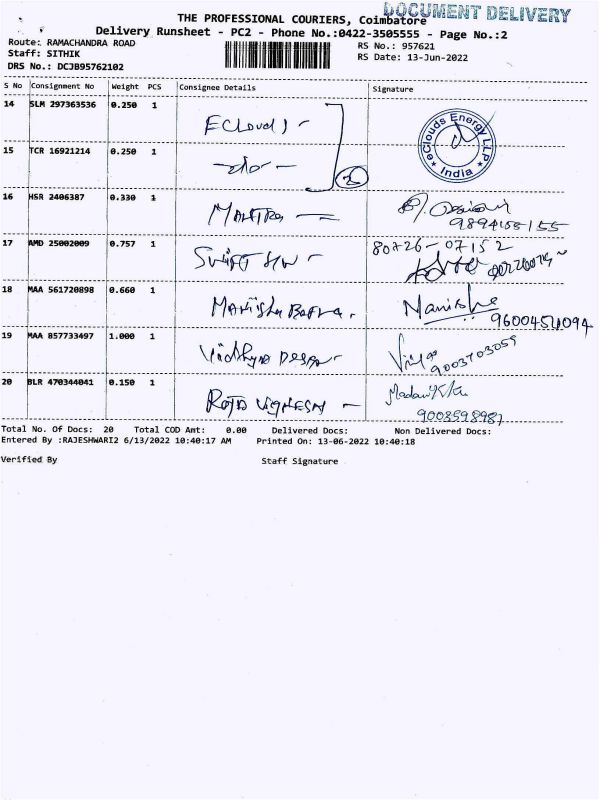 DOCUMENT DELIVERY
THE PROFESSIONAL COURIERS, Coimbatore
Delivery Runsheet - PC2 - Phone No.:0422-3505555 - Page No.:2
Route: RAMACHANDRA ROAD
RS No.: 957621
Staff: SITHIK
RS Date: 13-Jun-2022
DRS No.: DCJB95762102
S No Consignment No Weight PCS Consignee Details Signature
14 SLM 297363536 0.250 1 Eclouds
eClouds Energy LLP
India
15 TCR 16921214 0.250 1 -do-
2
16 HSR 2406387 0.330 1 MANTRA
9894155155
17 AMD 25002009 0.757 1 80726-07152
18 MAA 561720898 0.660 1 Manisha
9600454094
19 MAA 857733497 1.000 1 Vidhya
9003703055
20 BLR 470344041 0.150 1 Raja Vignesh
9003598987
Total No. Of Docs: 20 Total COD Amt: 0.00 Delivered Docs: Non Delivered Docs:
Entered By :RAJESHWARI2 6/13/2022 10:40:17 AM Printed On: 13-06-2022 10:40:18
Verified By Staff Signature